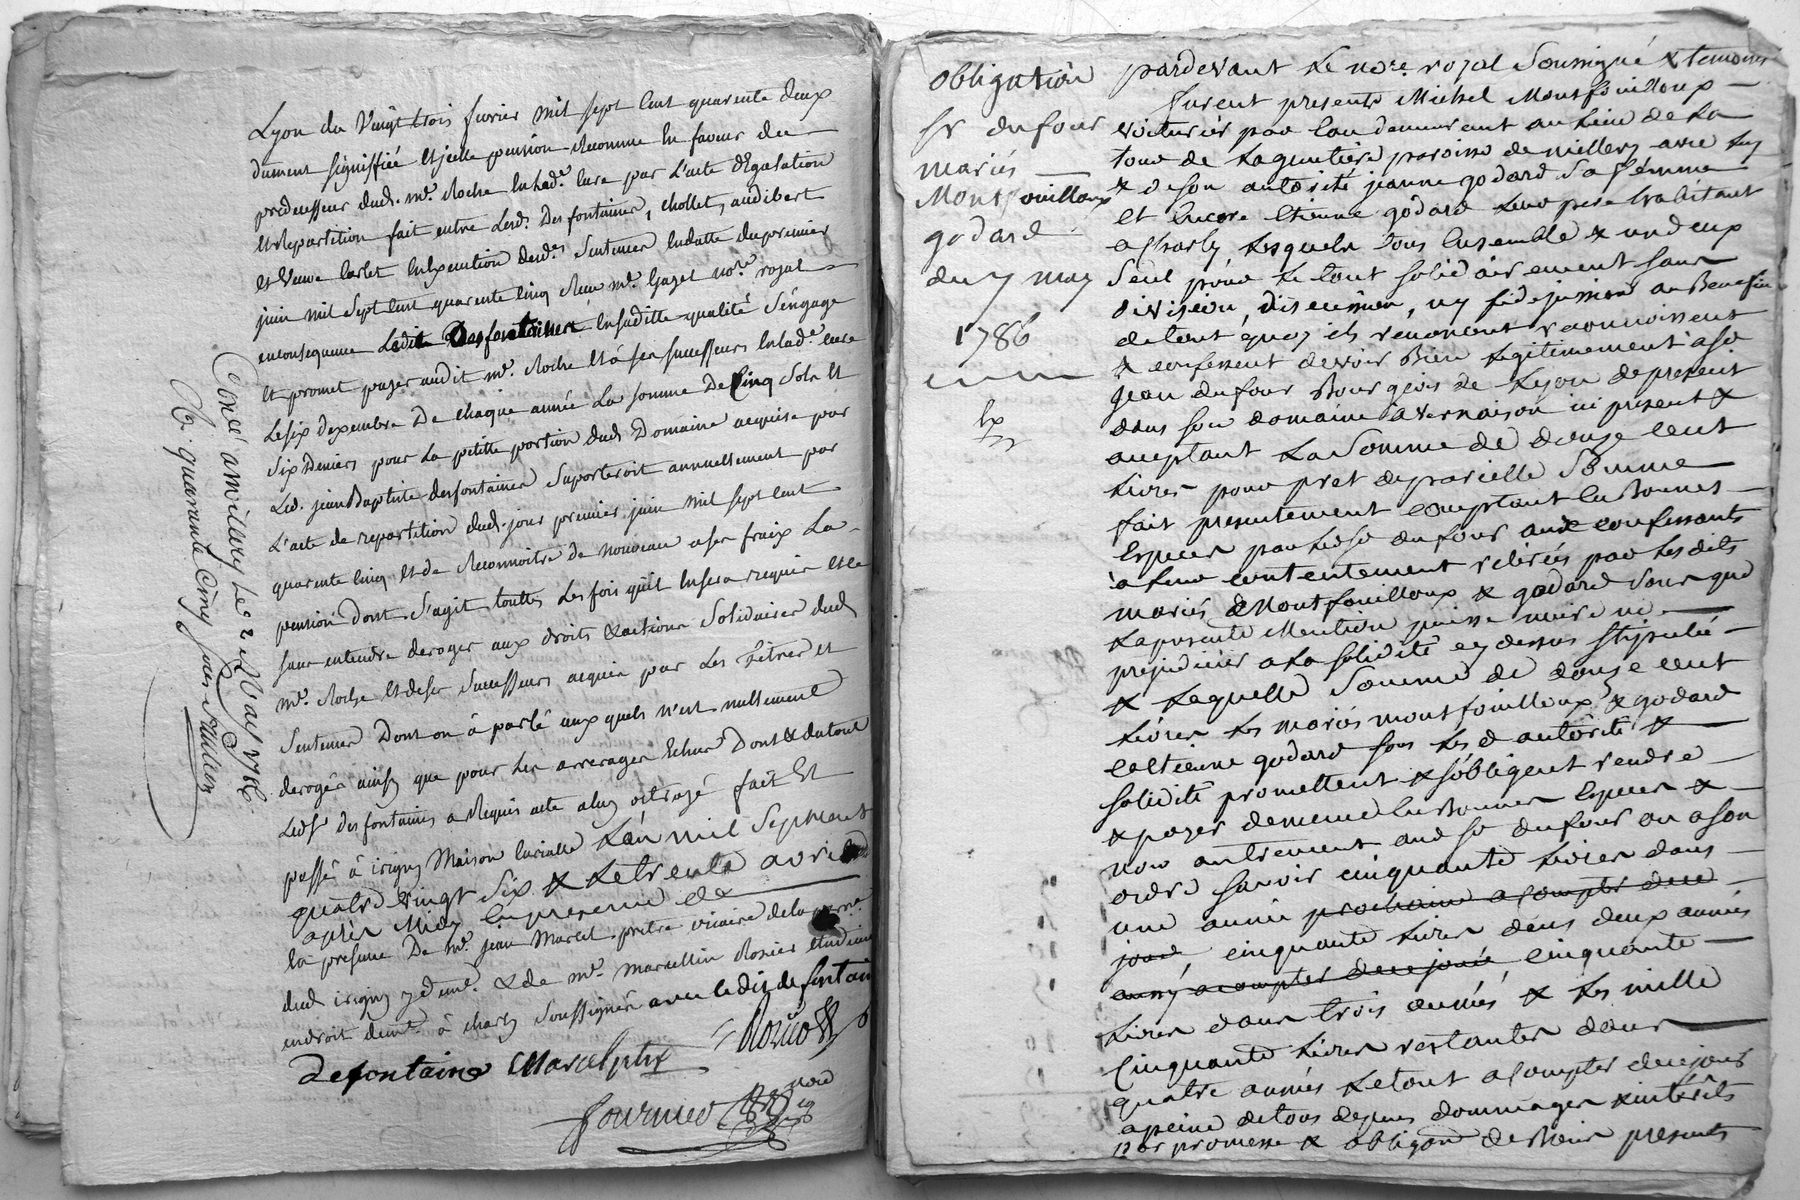 Lyon du Vingt trois fevrier mil sept cent quarente deux
dument signiffiée et icelle pension Reconnue En faveur du
predecesseur dudt. mr. Roche Enladte. Cure par L'acte d'Egalation
et Repartition fait entre Lesds. Desfontaines, chollet, audibert
et Veuve Carlet En Execution desdes. Sentences En datte du premier
juin mil Sept Cent quarente cinq Reçu mr. Gazet nore. royal
en consequence Ledit Desfontaines En saditte qualité s'engage
et promet payer audit mr. Roche et à ses successeurs Enladte. cure
Le six decembre De chaque année La somme De Cinq Sols et
Six Deniers pour La petite portion dudt. Domaine acquise par
Led. jean Baptiste desfontaines Suporteroit annuellement par
L'acte de repartition dudt. jour premier juin mil sept cent
quarente cinq et de Reconnoitre de nouveau a ses fraix La
pension Dont S'agit touttes Les fois qu'il En sera requis et ce
sans entendre deroger aux droits & actions Solidaires dudt.
mr. Roche et de ses Successeurs acquis par Les titres et
Sentences Dont on à parlé aux quels n'est nullement
derogé ainsy que pour Les arrerages Echus Dont & du tout
Ledsr. desfontaines a Requis acte a luy octroyé fait Et
passé à irigny Maison Curialle L'an mil Sept cent
quatre vingt Six & Le trente avril
après Midy En presence de
la presence De mr. jean Marcel pretre vicaire de la parsse.
dudt. irigny y demt. & de mr. marcellin Rosier etudiant
endroit demt. à charly Soussignés avec ledit desfontaines
Defontaine Marcel ptre Rosier
Fournereau nore
Controllé a millery Le 2 May 1786
R. quarante Cinq sous
obligation
sr dufour
mariés
Montfouilloux
godard
du 7 may
1786
Ex
pardevant Le nore. royal Soussigné & temoins
furent presents Michel Montfouilloux
voiturier par Eau demeurant au Lieu de La
tour de Laguetiere paroisse de millery avec Luy
& de son autorité jeanne godard Sa femme
Et Encore Etienne godard Leur pere habitant
a Charly Lesquels tous Ensemble & un d'eux
Seul pour Le tout solidairement sans
division, discussion, ny fidejussion au Benefice
de tout quoy ils renoncent reconnoissent
& confessent devoir Bien Legitimement a sr
jean dufour Bourgeois de Lyon de present
dans son domaine à vernaison ici present &
acceptant La Somme de douze cent
Livres pour pret de pareille Somme
fait presentement comptant En Bonnes
Especes par Led sr dufour aux confessants
a leur contentement retirées par Les dits
mariés Montfouilloux & godard Sans que
La presente Mention puisse nuire ni
prejudicier a La solidité cy dessus stipulée
& Laquelle Somme de douze cent
Livres Les mariés montfouilloux & godard
Et Etienne godard sous Les d autorité &
solidité promettent & s'obligent rendre
& payer de meme En Bonnes Especes &
non autrement aud sr dufour ou a son
ordre savoir cinquante Livres dans
une année prochaine a compter de ce
jour, cinquante Livres dans deux années
aussy a compter de ce jour, cinquante
Livres dans trois années & Les mille
Cinquante Livres restantes dans
quatre années Le tout a compter de ce jour
a peine de tous depens dommages & interêts
par promesse & obligaon de Biens presents